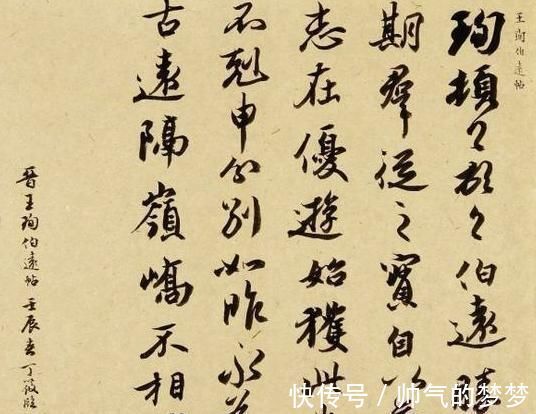 王珣伯遠帖
珣頓首頓首伯遠勝
期羣從之寶自以
志在優遊始獲此
不剋申分別如昨永為
古遠隔嶺嶠不相
晉王珣伯遠帖 壬辰春丁筱臨
快传号 / 帅气的梦梦